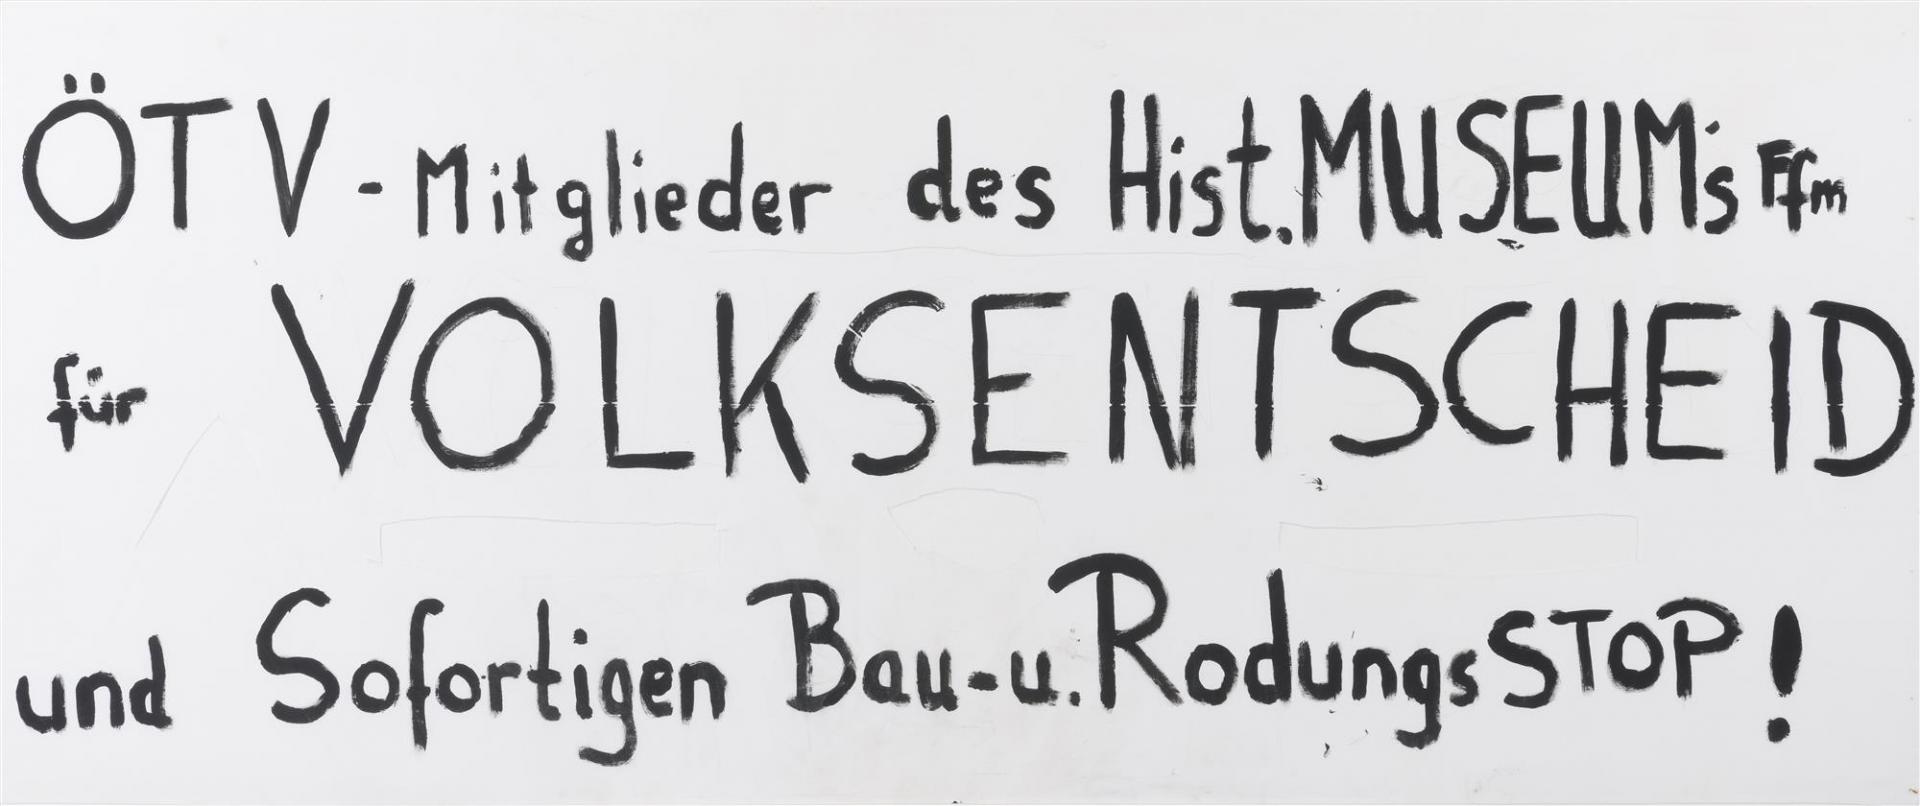 ÖTV - Mitglieder des Hist. MUSEUM's Ffm
für VOLKSENTSCHEID
und Sofortigen Bau- u. RodungsSTOP!